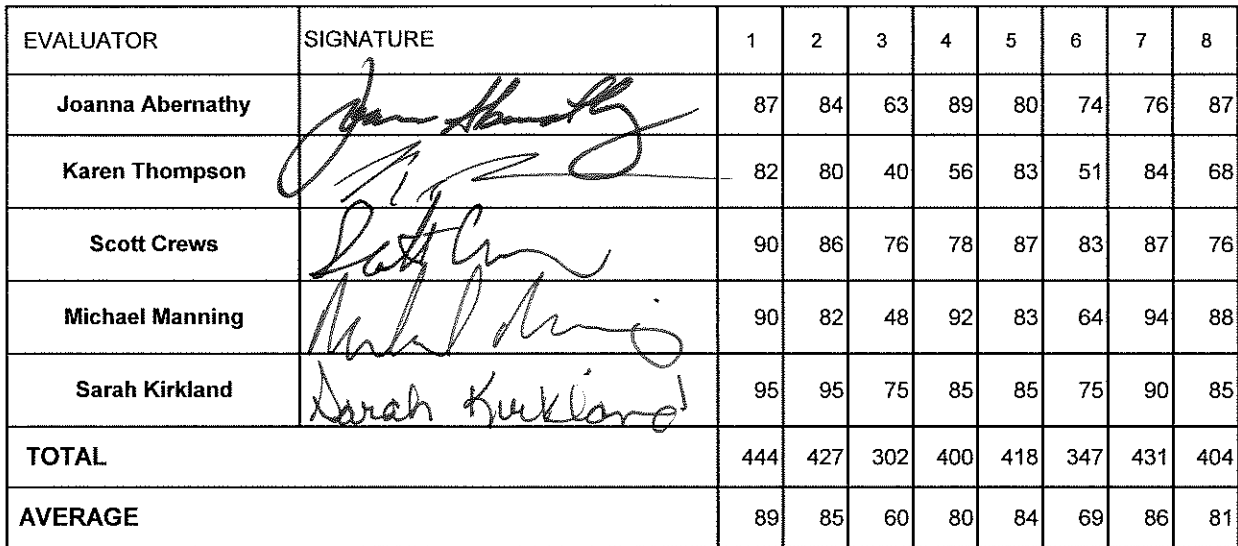 EVALUATOR SIGNATURE 1 2 3 4 5 6 7 8
Joanna Abernathy 87 84 63 89 80 74 76 87
Karen Thompson 82 80 40 56 83 51 84 68
Scott Crews 90 86 76 78 87 83 87 76
Michael Manning 90 82 48 92 83 64 94 88
Sarah Kirkland Sarah Kirkland 95 95 75 85 85 75 90 85
TOTAL 444 427 302 400 418 347 431 404
AVERAGE 89 85 60 80 84 69 86 81